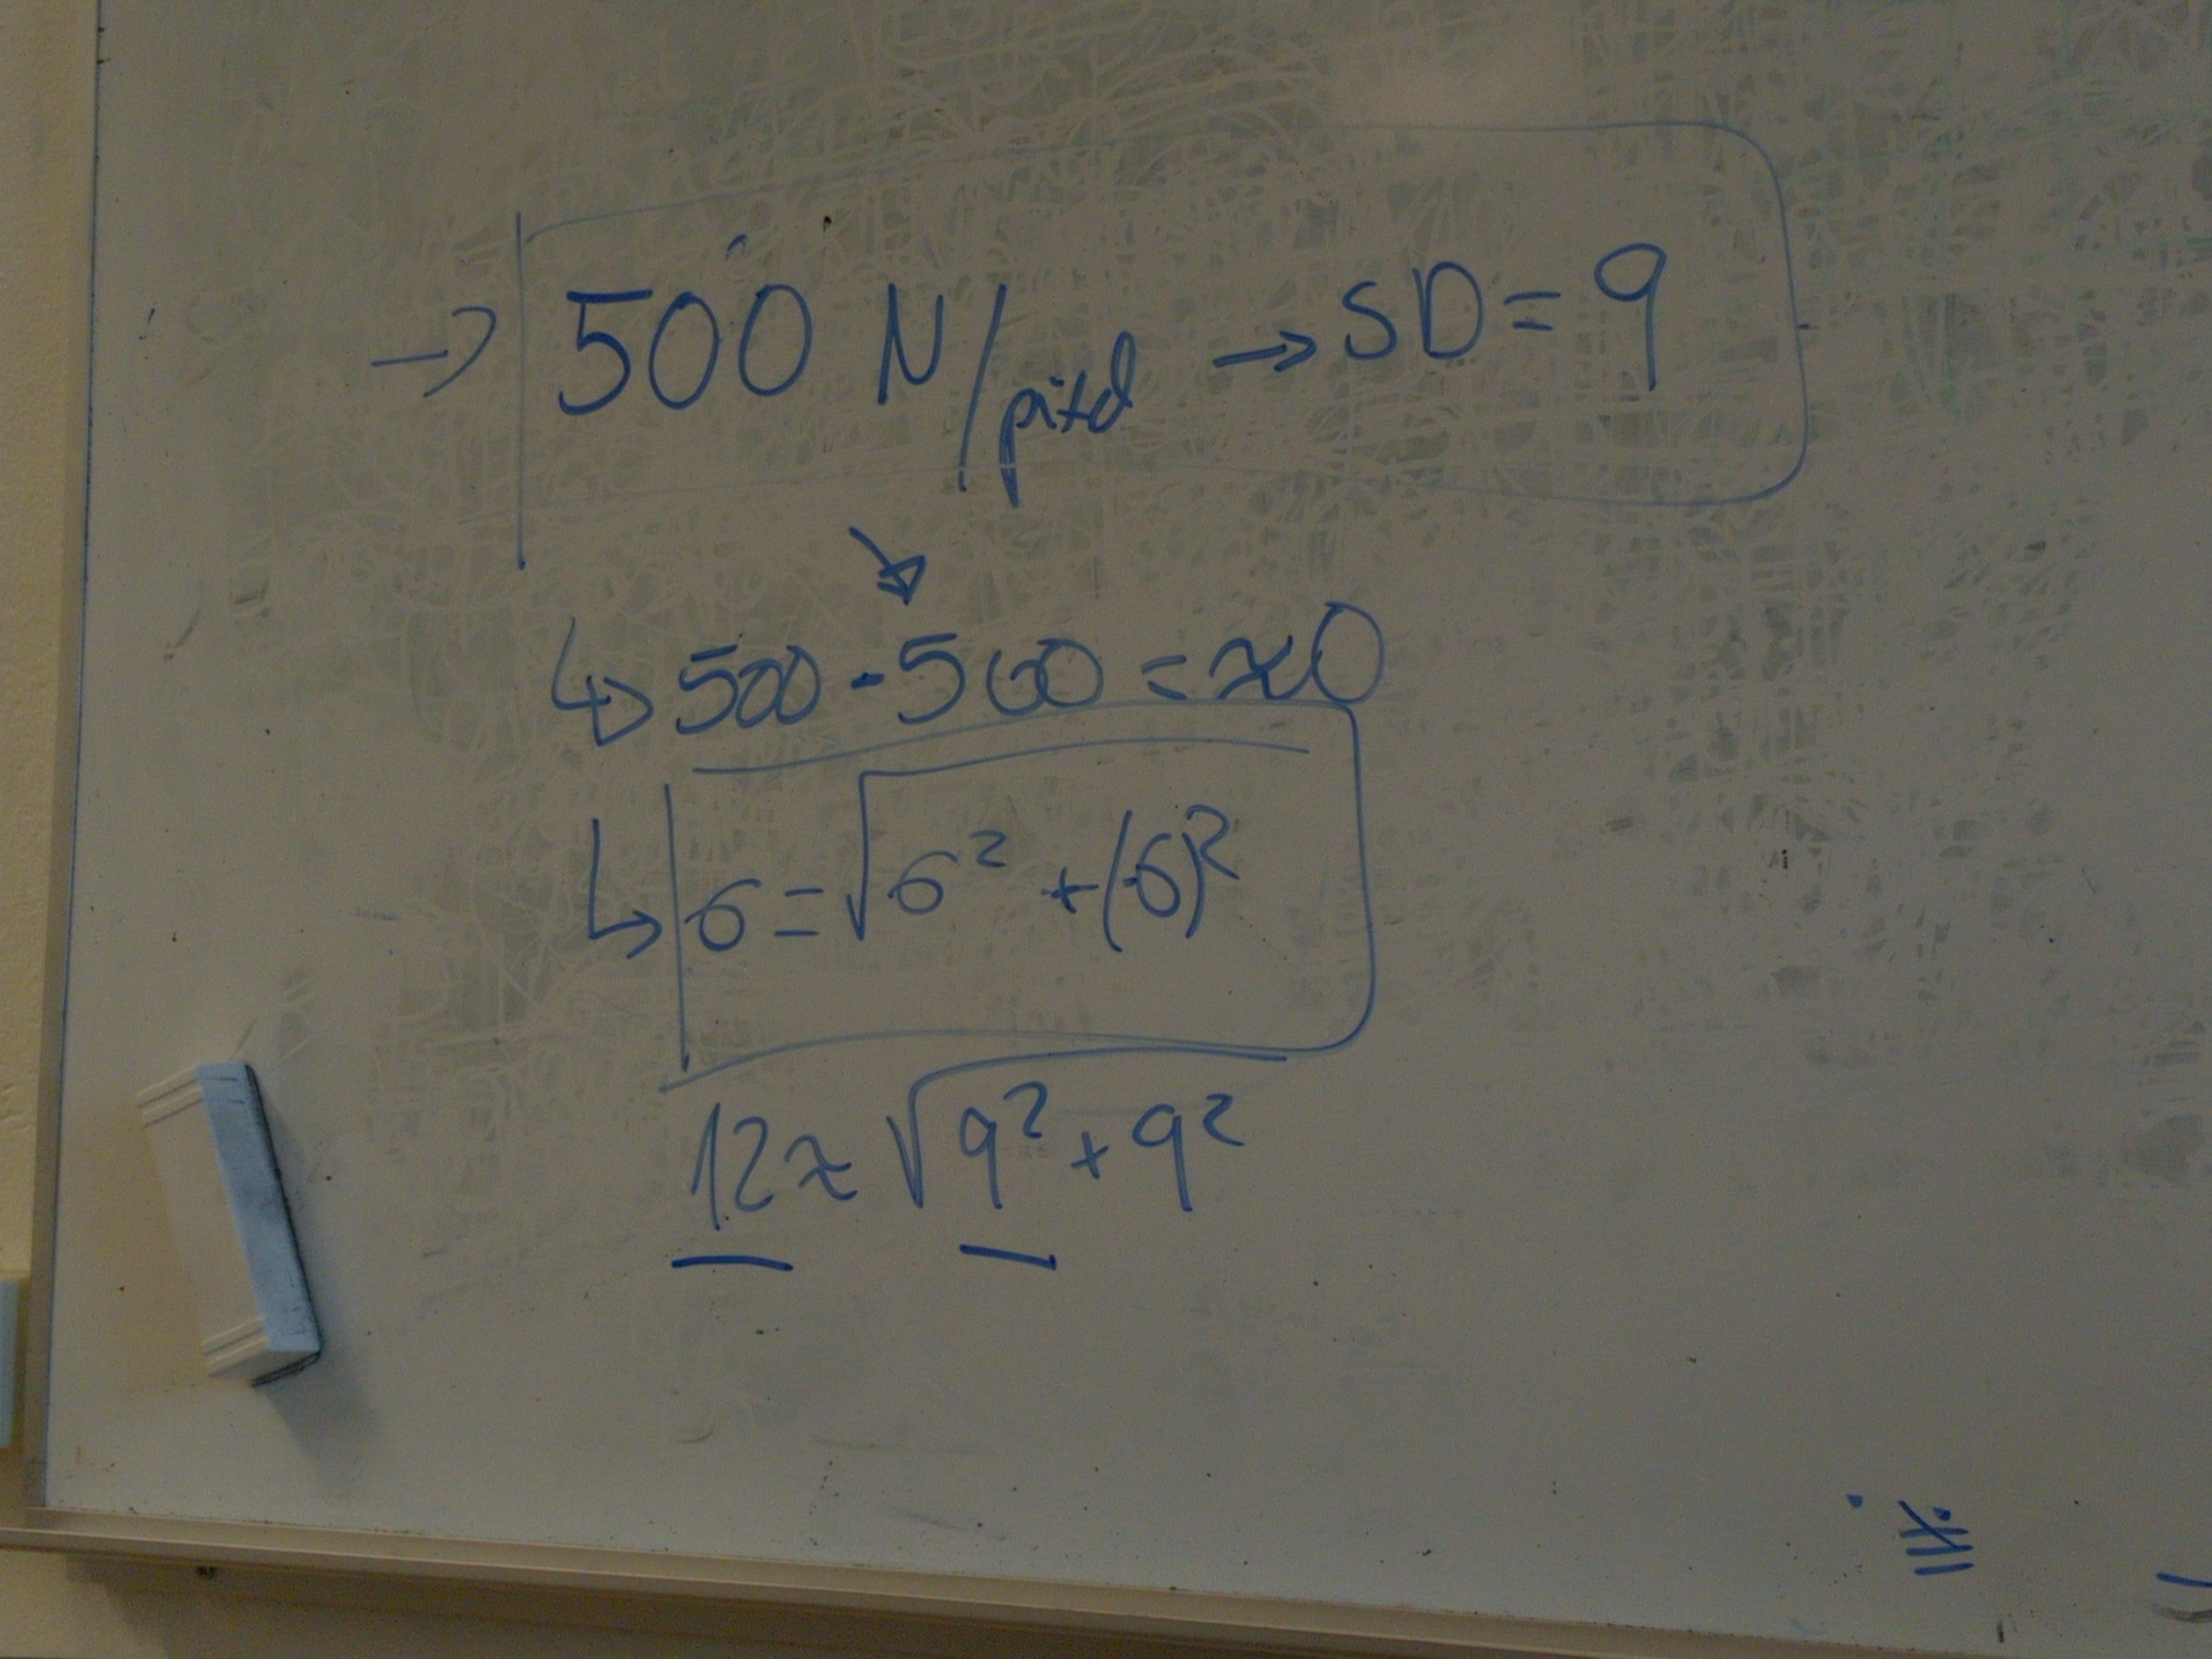 → 500 N/pixel → SD = 9
↳ 500 - 500 = ≈0
↳ σ = √σ² + (-σ)²
12 ≈ √9² + 9²